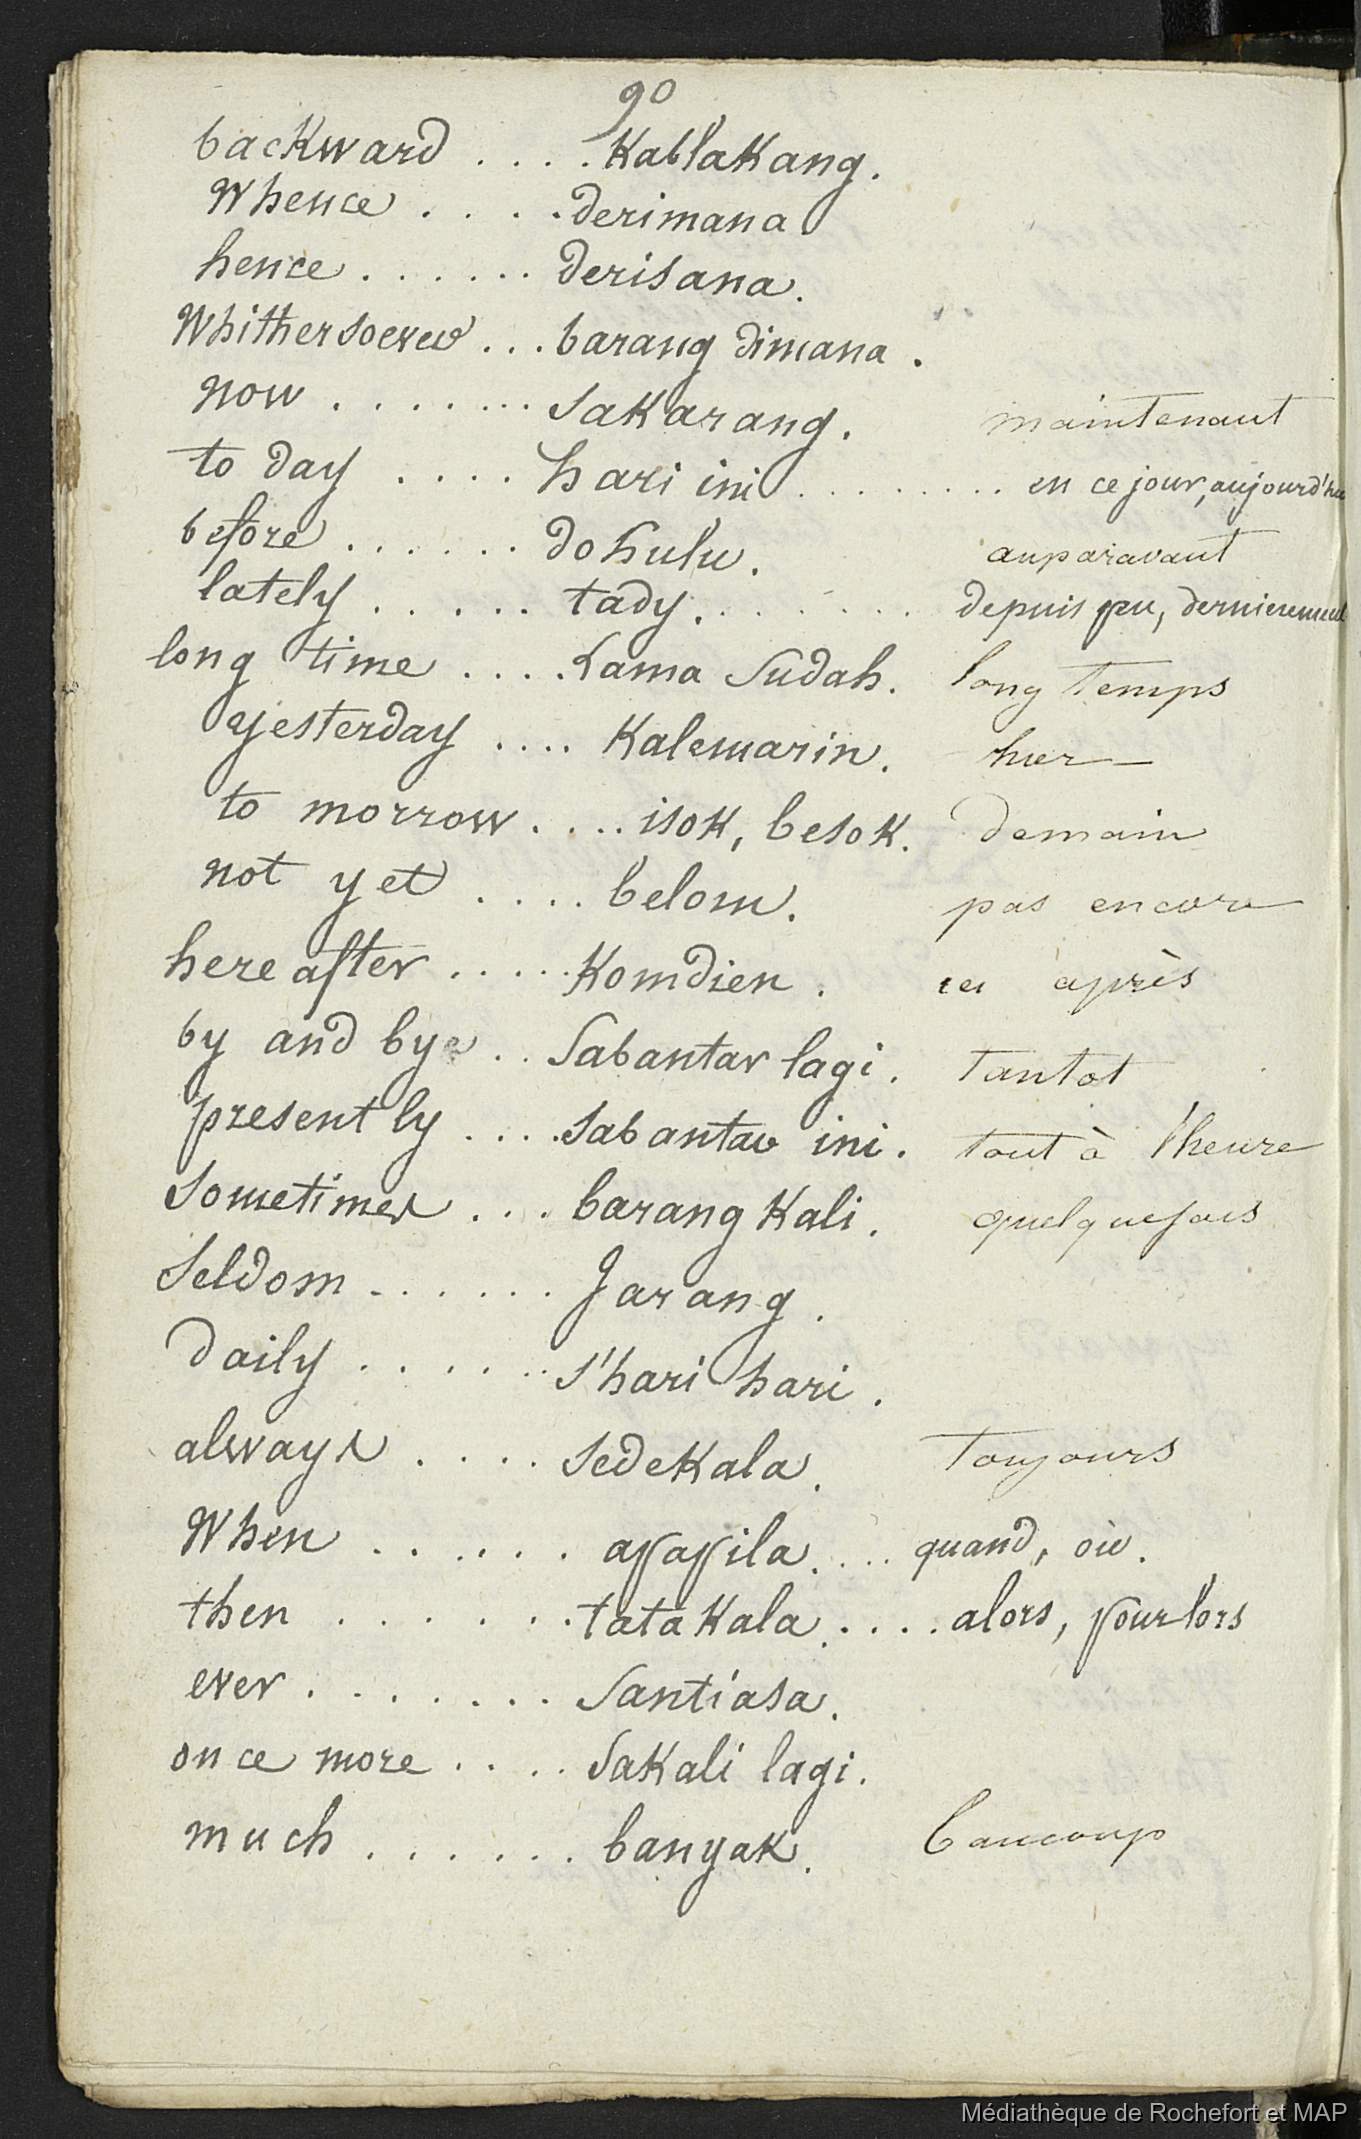 90
backward .... Kablakang.
Whence .... derimana
hence ...... derisana.
Whithersoever ... barang dimana.
now ....... sakarang. maintenant
to day .... hari ini ........ en ce jour, aujourd'hui
before ...... dohulu. auparavant
lately ...... tady. ....... depuis peu, dernierement
long time .... Lama Sudah. long temps
yesterday .... Kalemarin. hier
to morrow .... isok, besok. Demain
not yet .... belom. pas encore
here after ..... Komdien. ici après
by and bye .. Sabantar lagi. tantot
presently .... Sabantar ini. tout à l'heure
Sometimes ... barang Kali. quelquefois
Seldom ...... Jarang.
Daily ...... S'hari hari.
always .... Sedekala. Toujours
When ...... apapila. ... quand, où.
then ...... tatakala ..... alors, pour lors
ever ....... Santiasa.
once more .... Sakali lagi.
much ...... banyak. baucoup
Médiathèque de Rochefort et MAP